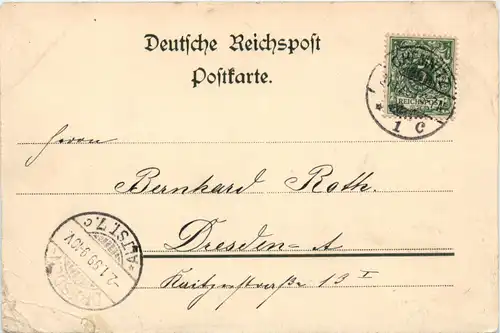 Deutsche Reichspost
Postkarte.
REICHSPOST
1 C
Herrn
Bernhard Roth.
Dresden-A
Kaitzerstraße 13 I
ALTST. 7. c
-2.1.99 9-10V.